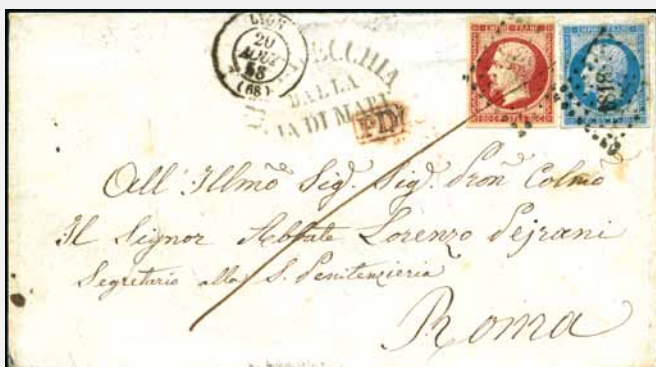 LYON
20
AOUT
58
(68)
VECCHIA
DALLA
VIA DI MARE
PD
EMPIRE FRANC
EMPIRE FRANC
1818
All' Illmo Sig. Sig. Pron Colmo
Il Signor Abbate Lorenzo Pejrani
Segretario alla S. Penitenzieria
Roma